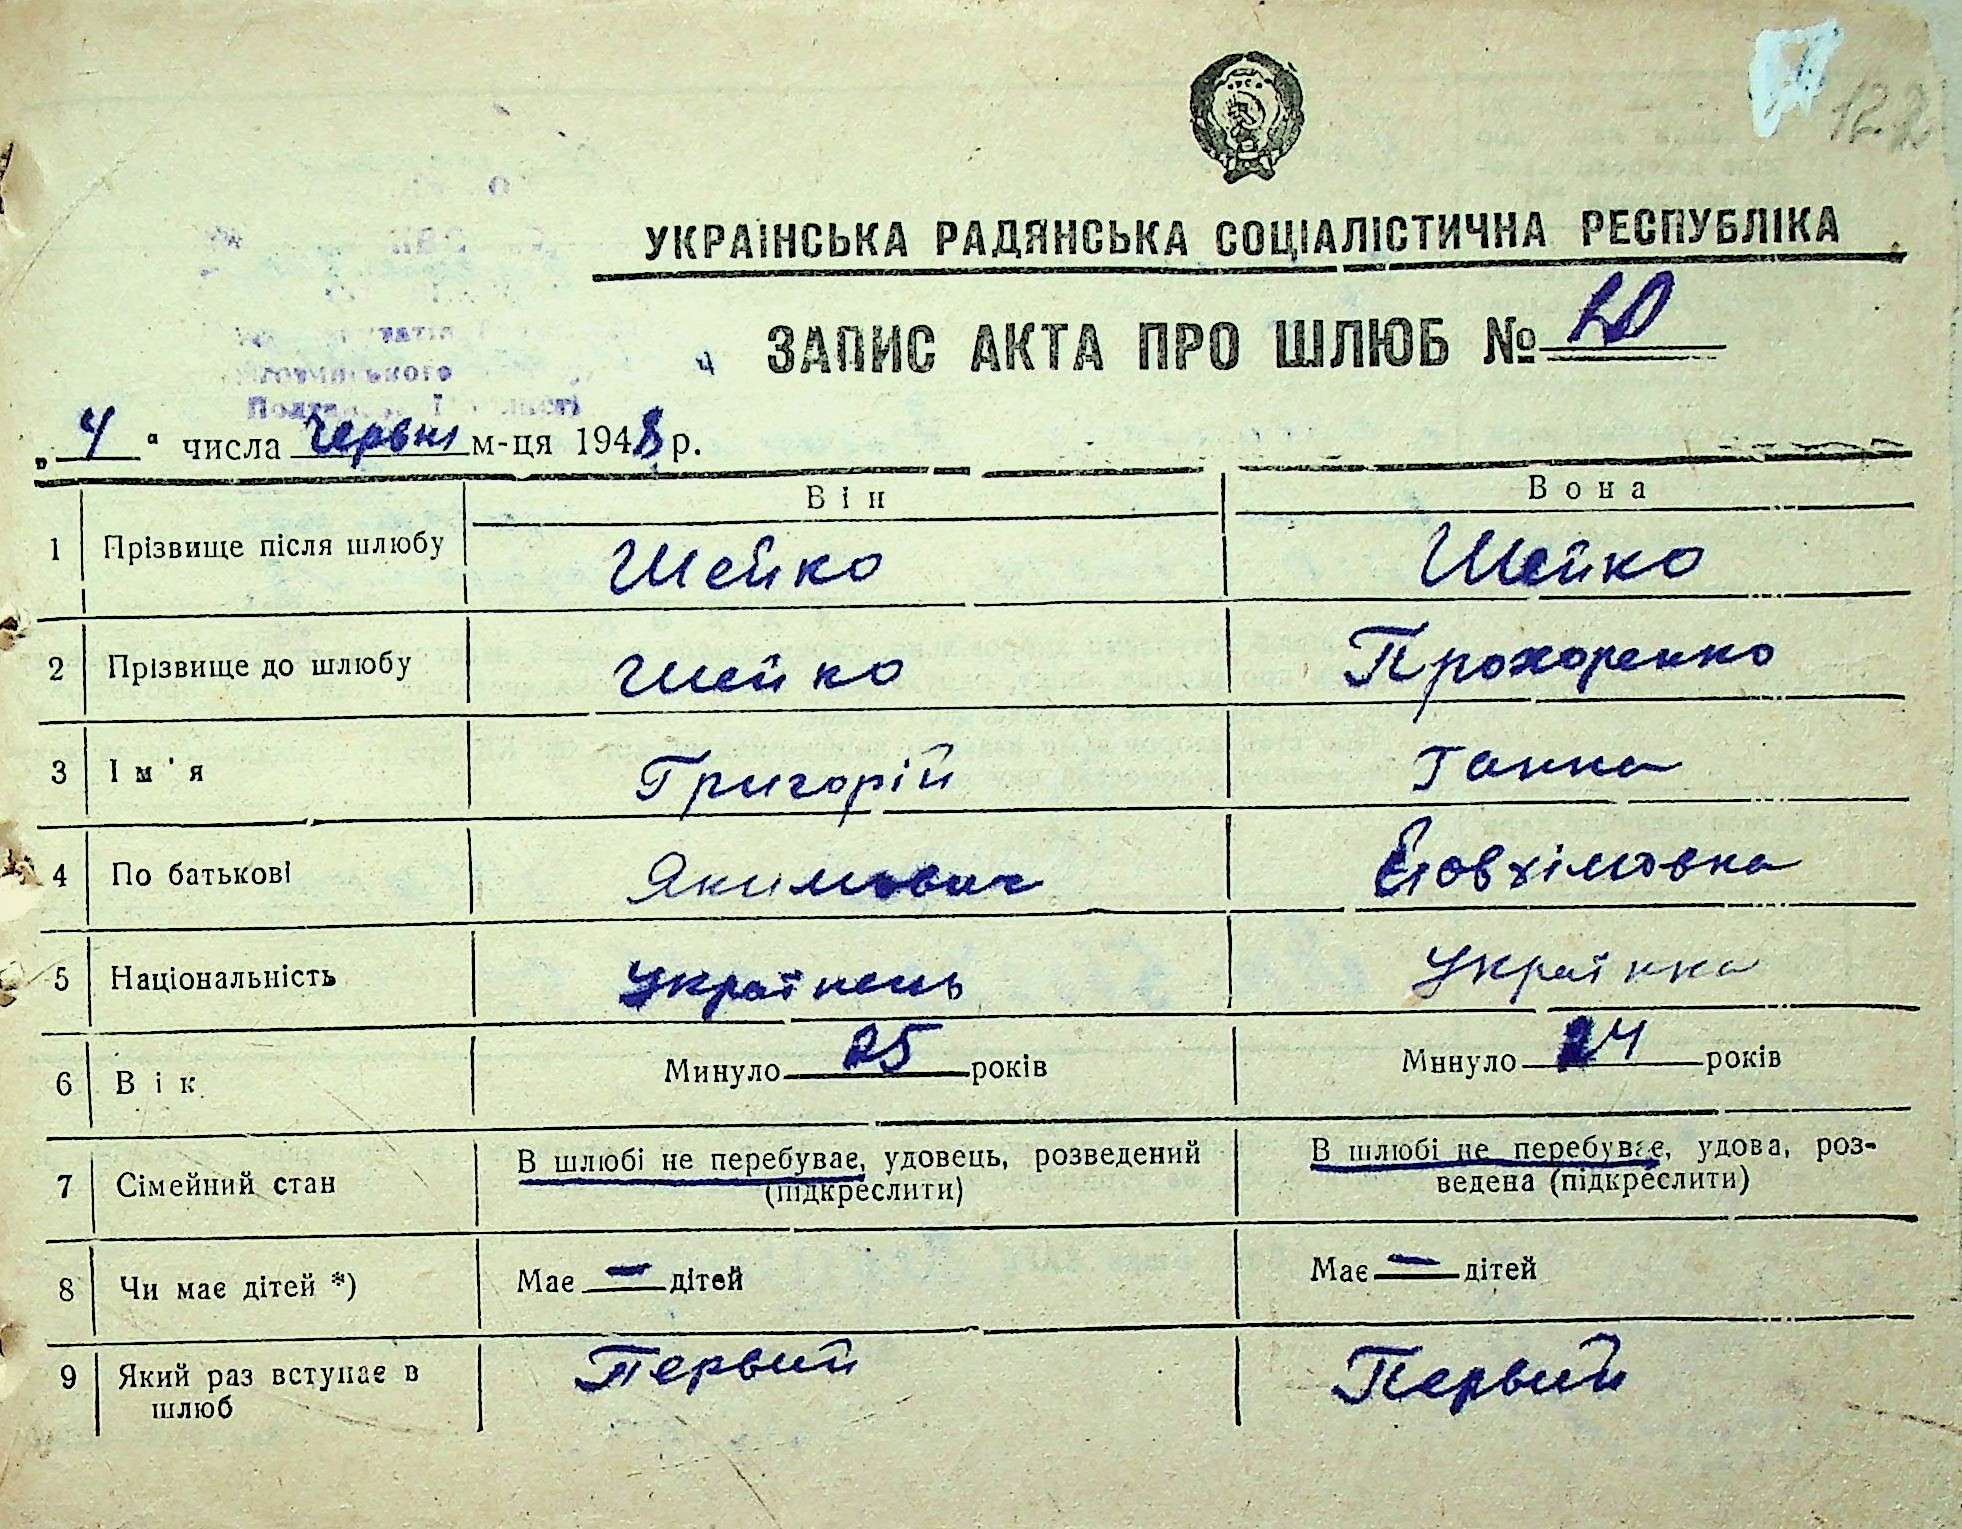 122
УКРАЇНСЬКА РАДЯНСЬКА СОЦІАЛІСТИЧНА РЕСПУБЛІКА
ЗАПИС АКТА ПРО ШЛЮБ № 20
„4“ числа Червня м-ця 1948 р.
Він Вона
1 Прізвище після шлюбу Шейко Шейко
2 Прізвище до шлюбу Шейко Прохоренко
3 Ім'я Григорій Ганна
4 По батькові Якимович Євхімовна
5 Національність Українець Українка
6 Вік Минуло 25 років Минуло 24 років
7 Сімейний стан В шлюбі не перебуває, удовець, розведений В шлюбі не перебуває, удова, роз-
(підкреслити) ведена (підкреслити)
8 Чи має дітей *) Має — дітей Має — дітей
9 Який раз вступає в Первий Первий
шлюб